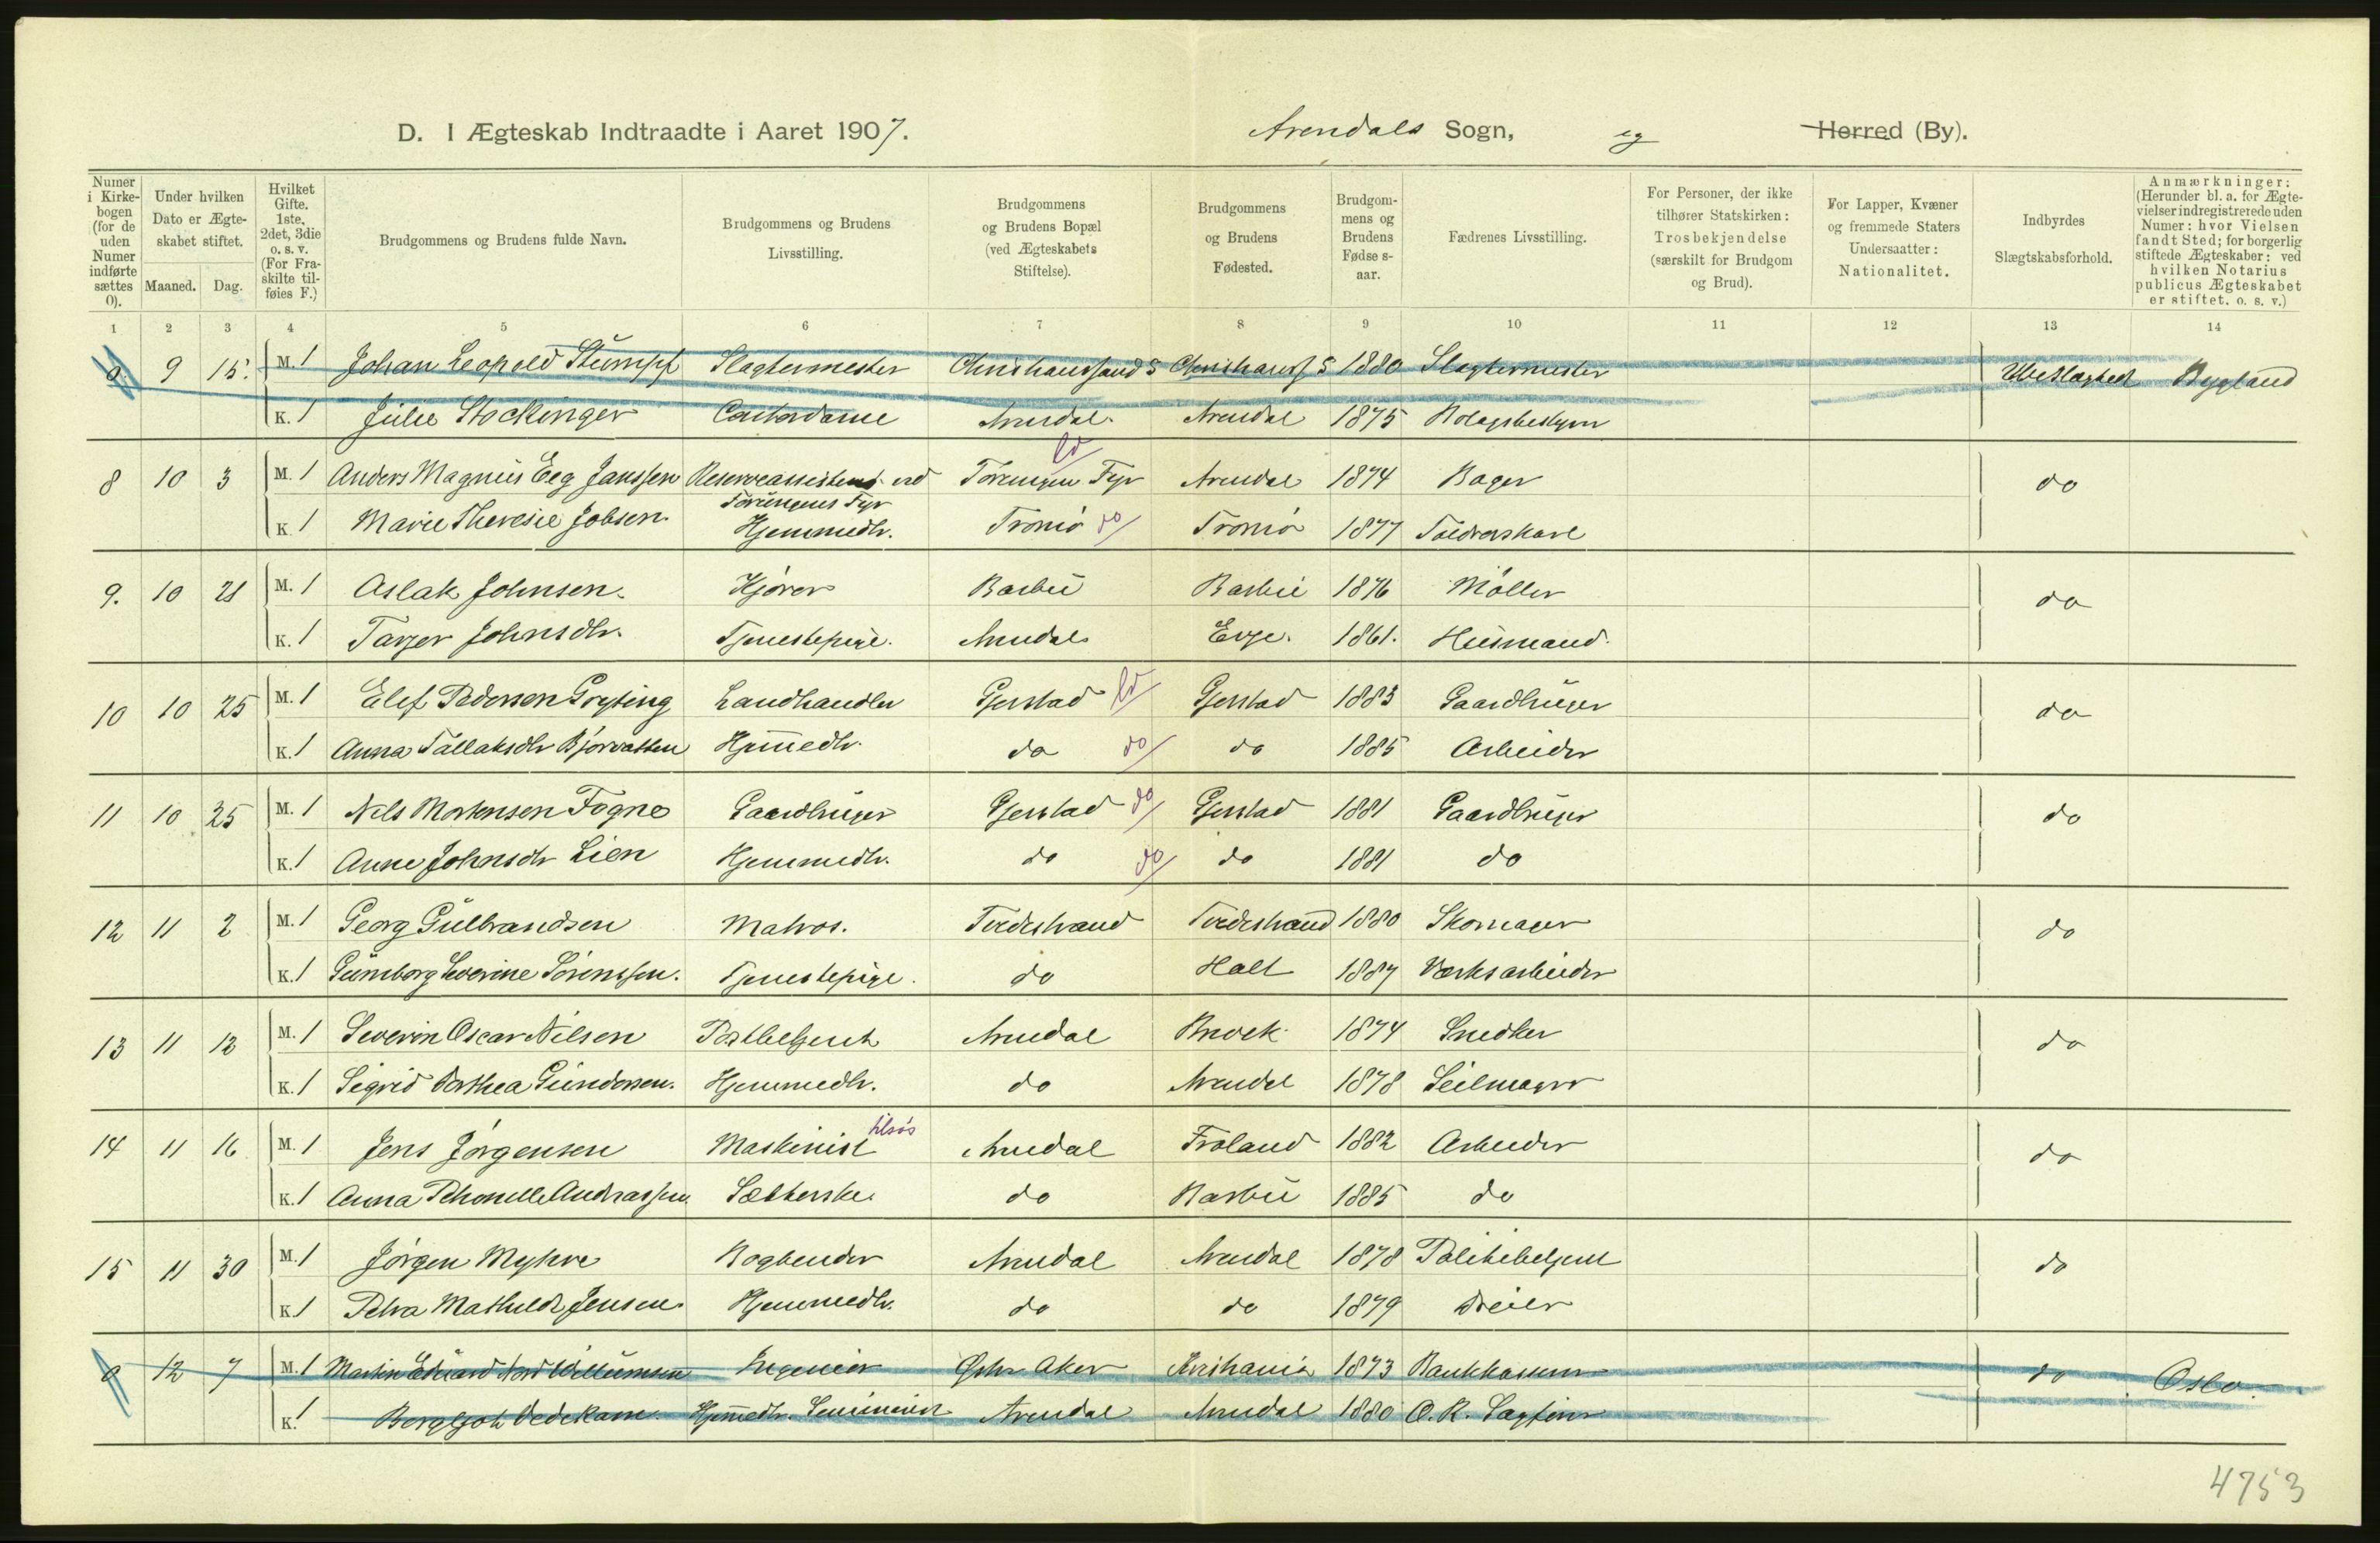 D. I Ægteskab Indtraadte i Aaret 1907. Arendals Sogn, og Herred (By).
Numer i Kirkebogen (for de uden Numer indførte sættes 0).
Under hvilken Dato er Ægteskabet stiftet.
Maaned. Dag.
Hvilket Gifte. 1ste, 2det, 3die o. s. v. (For Fraskilte tilføies F.)
Brudgommens og Brudens fulde Navn.
Brudgommens og Brudens Livsstilling.
Brudgommens og Brudens Bopæl (ved Ægteskabets Stiftelse).
Brudgommens og Brudens Fødested.
Brudgommens og Brudens Fødselsaar.
Fædrenes Livsstilling.
For Personer, der ikke tilhører Statskirken: Trosbekjendelse (særskilt for Brudgom og Brud).
For Lapper, Kvæner og fremmede Staters Undersaatter: Nationalitet.
Indbyrdes Slægtskabsforhold.
Anmærkninger: (Herunder bl. a. for Ægtevielser indregistrerede uden Numer: hvor Vielsen fandt Sted; for borgerlig stiftede Ægteskaber: ved hvilken Notarius publicus Ægteskabet er stiftet. o. s. v.)
1 2 3 4 5 6 7 8 9 10 11 12 13 14
0 9 15. M. 1 Johan Leopold Stumpf Slagtermester Christianssand S Christianss. S 1880 Slagtermester Ubeslægtet Bygland
K. 1 Julie Stockinger Contordame Arendal Arendal 1875
8 10 3 M. 1 Anders Magnus Eeg Janssen Reserveassistent ved Torungen Fyr Arendal 1874 Bager do
Torungens Fyr
K 1 Marie Theresie Jobsen Hjemmedtr. Tromø do Tromø 1877
9. 10 21 M. 1 Aslak Johnsen. Kjører Barbu Barbu 1876 Møller do
K. 1 Johnsdtr. Tjenestepige. Arendal Evje. 1861. Husmand.
10 10 25 M. 1 Elef Pedersen Gryting Landhandler Gjerstad Gjerstad 1883 Gaardbruger do
K. 1 Anna Tallaksdtr Bjorvatten Hjemmedtr. do do do 1885 Arbeider
11 10 25 M. 1 Nils Mortensen Fogne Gaardbruger Gjerstad do Gjerstad 1881 Gaardbruger do
K. 1 Anne Johnsdtr Lien Hjemmedtr. do do do 1881 do
12 11 2 M. 1 Georg Gulbrandsen Matros. Tvedestrand Tvedestrand 1880 Skomager do
K. 1 Gunborg Severine Sørenssen. Tjenestepige. do Holt 1887 Værksarbeider
13 11 12 M. 1 Severin Oscar Nilsen Postbetjent Arendal 1874 Snedker do
K. 1 Sigrid Dorthea Gundersen. Hjemmedtr. do Arendal 1878 Seilmager
14 11 16 M. 1 Jens Jørgensen Maskinist tilsøs Arendal Froland 1882 Arbeider do
K. 1 Anna Andreassen do Barbu 1885 do
15 11 30 M. 1 Jørgen Myhre Bogbinder Arendal Arendal 1878 Politibetjent do
K. 1 Petra Mathilde Jensen. Hjemmedtr. do do 1879 Dreier
0 12 7 M. 1 Martin Edvard Nord Willumsen Ingeniør Aker Kristiania 1873 Bankkasserer do Oslo.
K. 1 Bergljot Vedekam. Hjemmedtr. Arendal Arendal 1880 O. R. Sagfører
4753